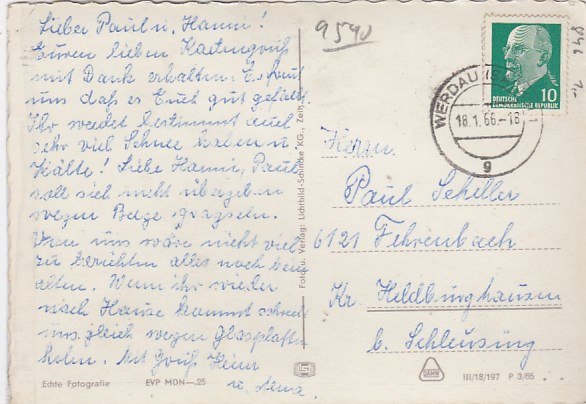 Lieber Paul u. Hanni!
Euren lieben Kartengruß
mit Dank erhalten. Es freut
uns daß es Euch gut gefällt.
Ihr werdet bestimmt auch
sehr viel Schnee haben u.
Kälte! Liebe Hanni, Paul
soll sich nicht übergeben
wegen Berge
Von uns wäre nicht viel
zu berichten alles noch beim
alten. Wenn ihr wieder
nach Hause kommt schreibt
uns gleich wegen
holen. Mit Gruß Heini
u.
Echte Fotografie EVP MDN —.25
Foto u. Verlag: Lichtbild-Schincke KG., Zeitz
9590
DEUTSCHE
DEMOKRATISCHE REPUBLIK
10
WERDAU
18.1.66.-18
g
Herrn
Paul Schiller
6121 Fehrenbach
Kr. Hildburghausen
b. Schleusing
III/18/197 P 3/65